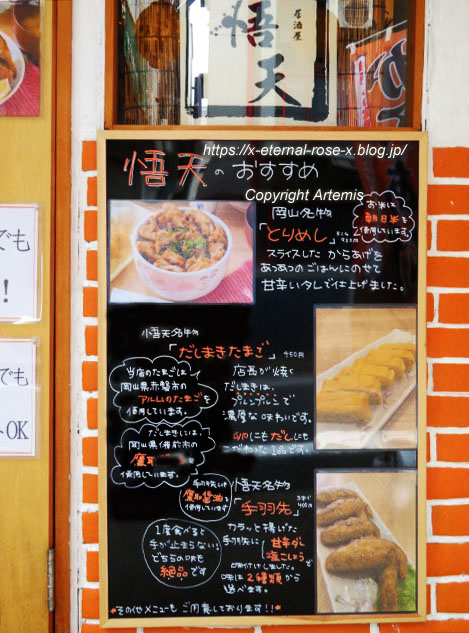 居酒屋
悟天
https://x-eternal-rose-x.blog.jp/
悟天のおすすめ
Copyright Artemis
岡山名物
「とりめし」
お米は
朝日米を
使用しています。
スライスした からあげを
あつあつのごはんにのせて
甘辛いタレで仕上げました。
悟天名物
「だしまきたまご」 450円
当店のたまごは
岡山県赤磐市の
アルムのたまごを
使用しています。
店長が焼く
だしまきは、
プレンプレンで
濃厚な味わいです。
卵にもだしにも
こだわった1品です。
だしまきには、
岡山県備前市の
鷹取
使用しています。
手羽先は
鷹取醤油を
使用しています
悟天名物
「手羽先」
400円
カラッと揚げた
手羽先に
甘辛ダレ
塩こしょうで
味付けしました。
味は2種類から
選べます。
1度食べると
手が止まらない!
どちらの味も
絶品です
*その他メニューもご用意しております!!*
でも
!
でも
OK